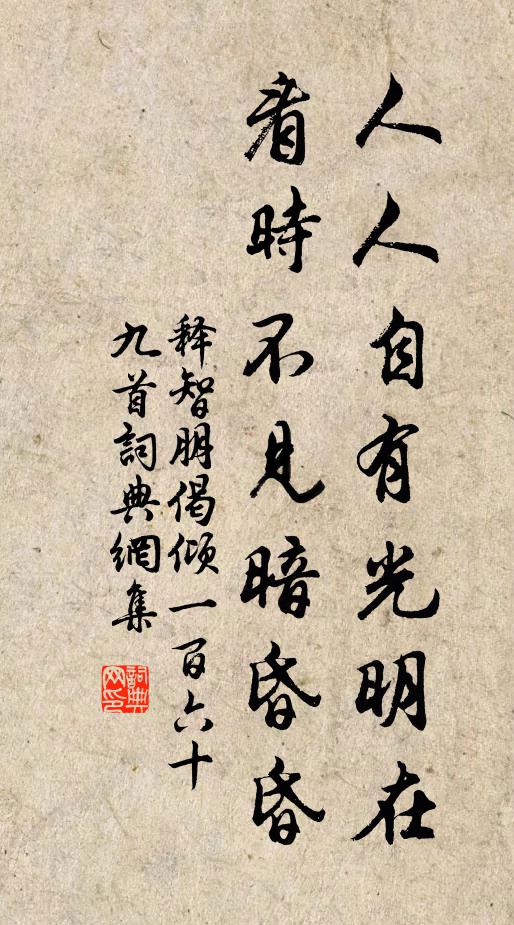 人人自有光明在
看時不見暗昏昏
释智朋偈傾一百六十
九首詞典網集
詞典
网印